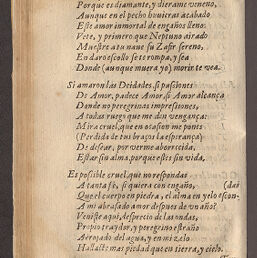 Porque es diamante, y dierame veneno,
Aunque en el pecho huuieras acabado
Este amor inmortal de engaños lleno.
Vete, y primero que Neptuno airado
Muestre a tu naue su Zafir sereno,
En dar o escollo se rompa, y sea
Donde (aunque muera yo) morir te vea.
Si amaron las Deidades, si passiones
De Amor, padece Amor, si Amor alcança
Donde no peregrinas impressiones,
A todas ruego que me den vengança:
Mira cruel, que en ocasion me pones
(Perdida de tus braços la esperança)
De dessear, por verme aborrecida,
Estar sin alma, porque estes sin vida,
Es possible cruel, que no respondas
A tanta fè, si quiera con engaño, (da
Que el cuerpo en piedra, el alma en yelo escon-
A mi abrasado amor despues de vn año?
Veniste aqui, desprecio de las ondas,
Propio traydor, y peregrino estraño
Arrojado del agua, y en mi zelo
Hallaste mas piedad que en tierra, y cielo.